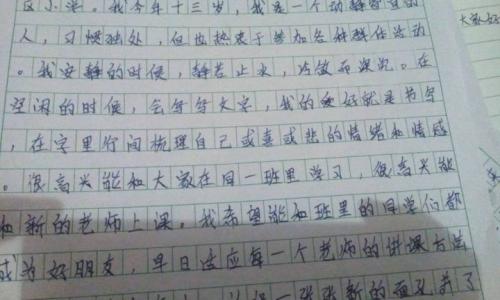 区小学。我今年十三岁，我是一个动静皆宜的
人，习惯独处，但也热衷于参加各种集体活动
。我安静的时候，静若止水，冷傲而深沉。在
空闲的时候，会写写文字，我的爱好就是书写
，在字里行间梳理自己或喜或悲的情绪和情感
。很高兴能和大家在同一班里学习，很高兴能
和新的老师上课。我希望能和班里的同学们都
成为好朋友，早日适应每一个老师的讲课方法
一张张新的面孔
大家好